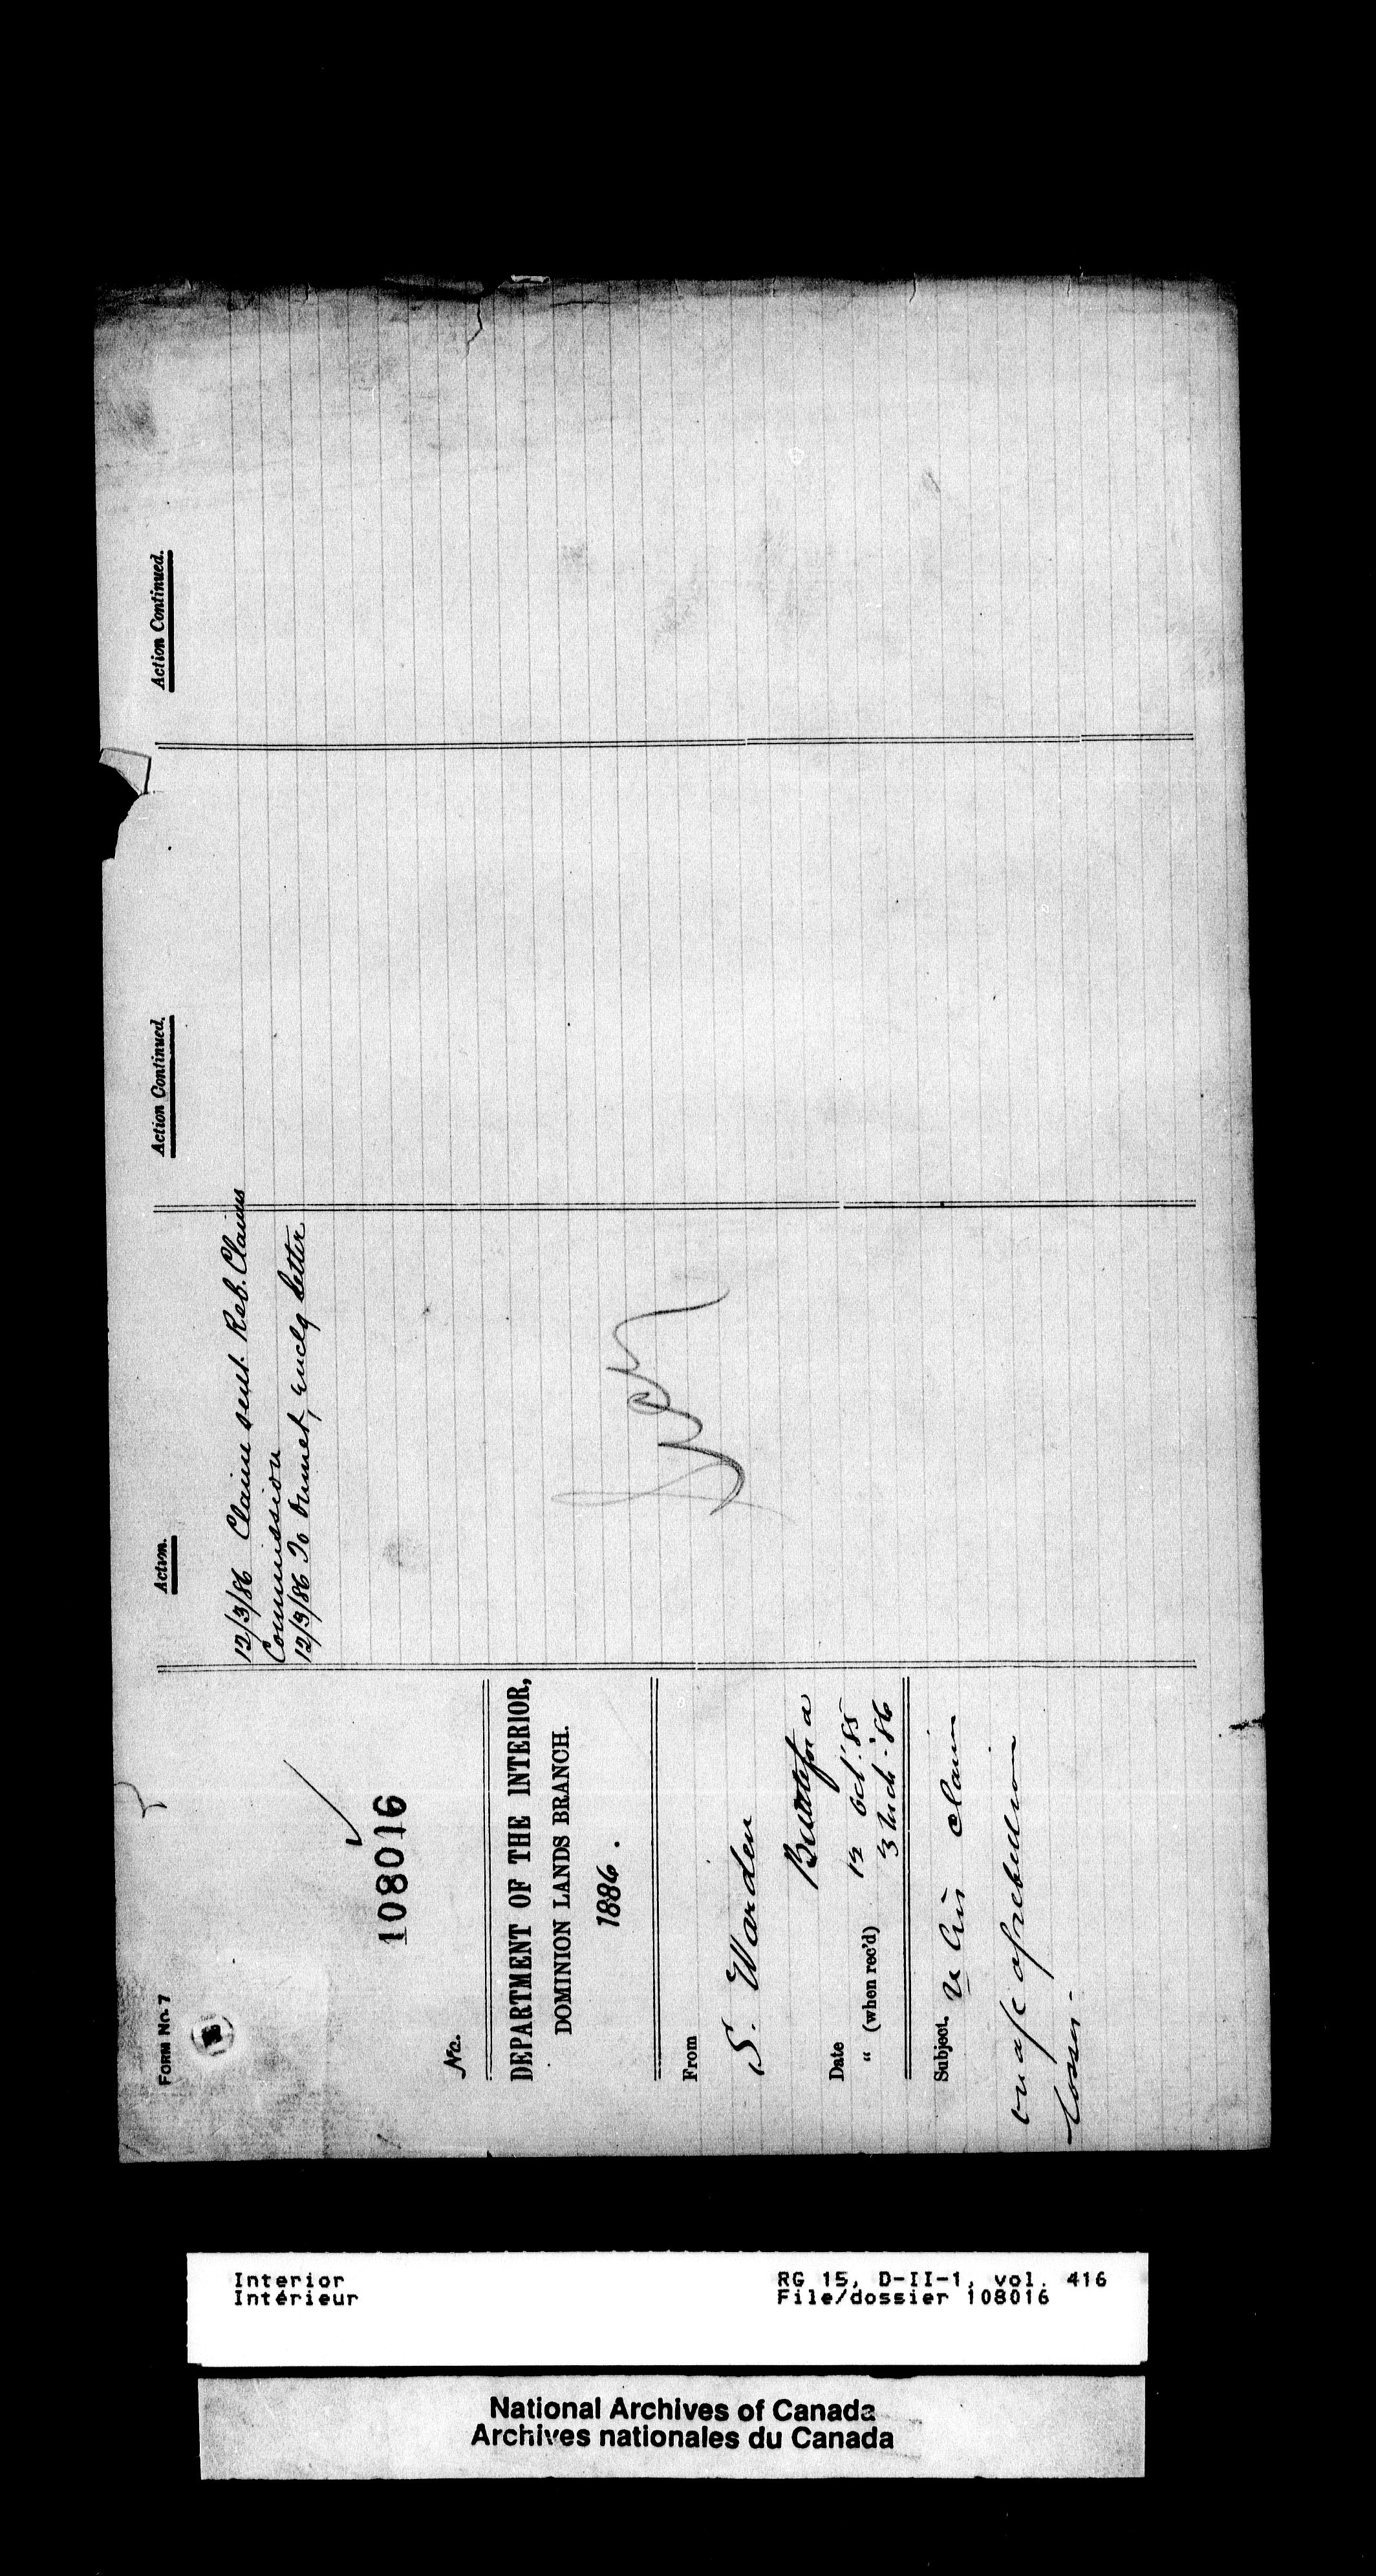 FORM No. 7
108016
No.
DEPARTMENT OF THE INTERIOR,
DOMINION LANDS BRANCH.
1886.
From
S. Warden
Date 19 Oct. '85
" (when rec'd) 3 Mch - '86
Subject. re his claim
on a/c of rebellion
losses -
Action.
12/3/86 Claim sent Reb. Claims
Commission
12/3/86 To enclg letter
Action Continued.
Action Continued.
Interior
Intérieur
RG 15, D-II-1, vol. 416
File/dossier 108016
National Archives of Canada
Archives nationales du Canada